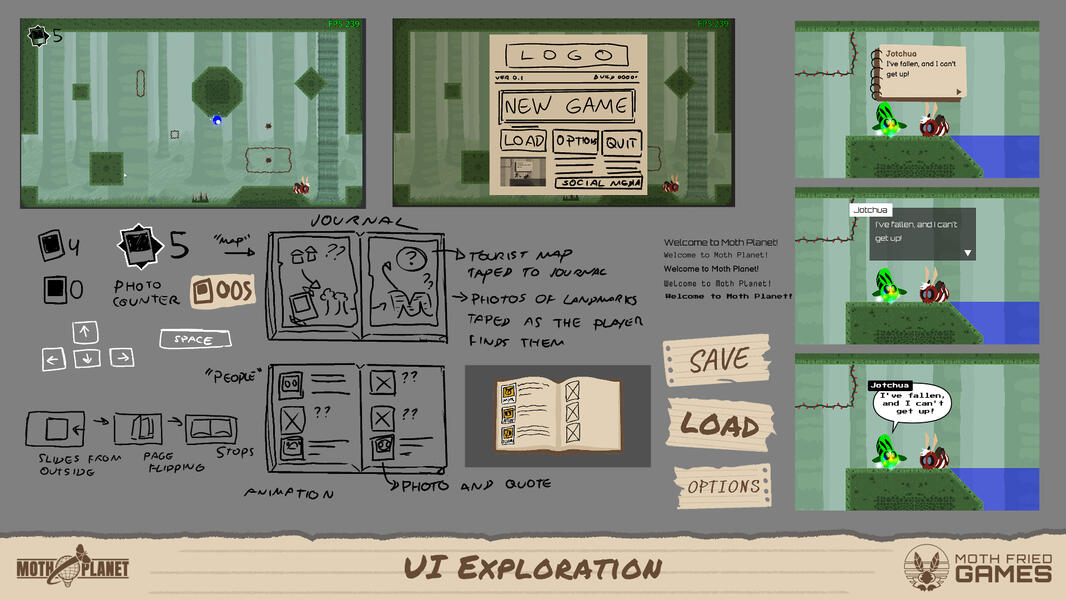 FPS 239
5
FPS 239
LOGO
VER 0.1
BUILD 0000
NEW GAME
LOAD
OPTIONS
QUIT
SOCIAL MEDIA
Jotchua
I've fallen, and I can't
get up!
Jotchua
I've fallen, and I can't
get up!
Jotchua
I've fallen,
and I can't
get up!
4
5
0
PHOTO
COUNTER
005
SPACE
"MAP"
JOURNAL
??
?
??
TOURIST MAP
TAPED TO JOURNAL
PHOTOS OF LANDMARKS
TAPED AS THE PLAYER
FINDS THEM
"PEOPLE"
??
??
??
PHOTO AND QUOTE
SLIDES FROM
OUTSIDE
PAGE
FLIPPING
STOPS
ANIMATION
Welcome to Moth Planet!
Welcome to Moth Planet!
Welcome to Moth Planet!
Welcome to Moth Planet!
Welcome to Moth Planet!
SAVE
LOAD
OPTIONS
MOTH PLANET
UI Exploration
MOTH FRIED
GAMES